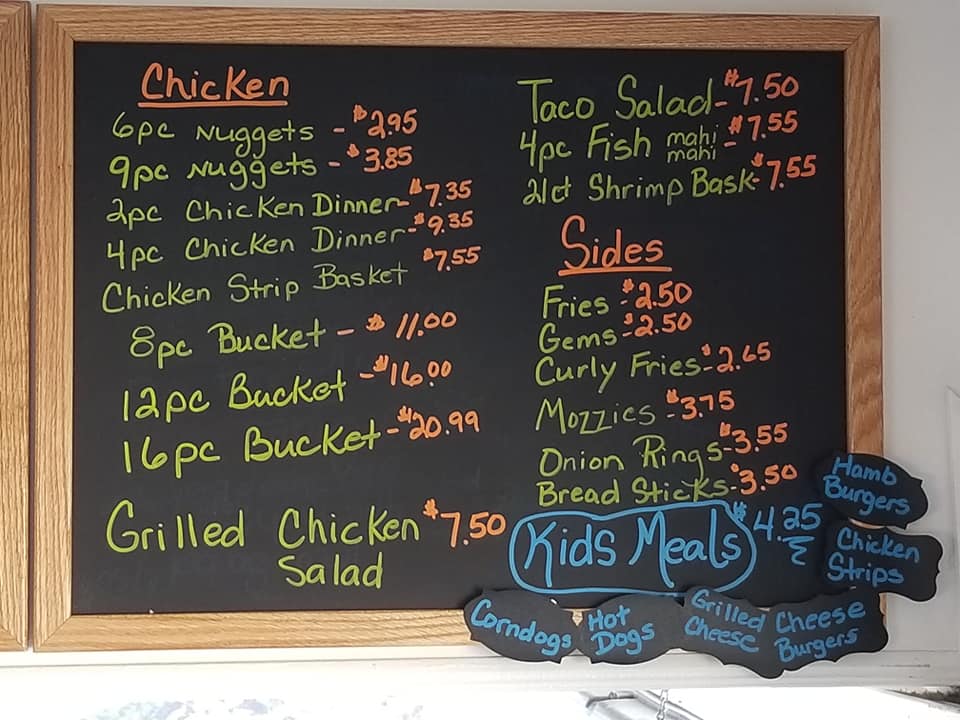 Chicken
6pc Nuggets - $2.95
9pc Nuggets - $3.85
2pc Chicken Dinner - $7.35
4pc Chicken Dinner - $9.35
Chicken Strip Basket $7.55
8pc Bucket - $11.00
12pc Bucket - $16.00
16pc Bucket - $20.99
Grilled Chicken $7.50
Salad
Taco Salad - $7.50
4pc Fish mahi mahi - $7.55
21ct Shrimp Bask - $7.55
Sides
Fries - $2.50
Gems - $2.50
Curly Fries - $2.65
Mozzies - $3.75
Onion Rings - $3.55
Bread Sticks - $3.50
Kids Meals $4.25
Hamb
Burgers
Chicken
Strips
Corndogs
Hot
Dogs
Grilled
Cheese
Cheese
Burgers